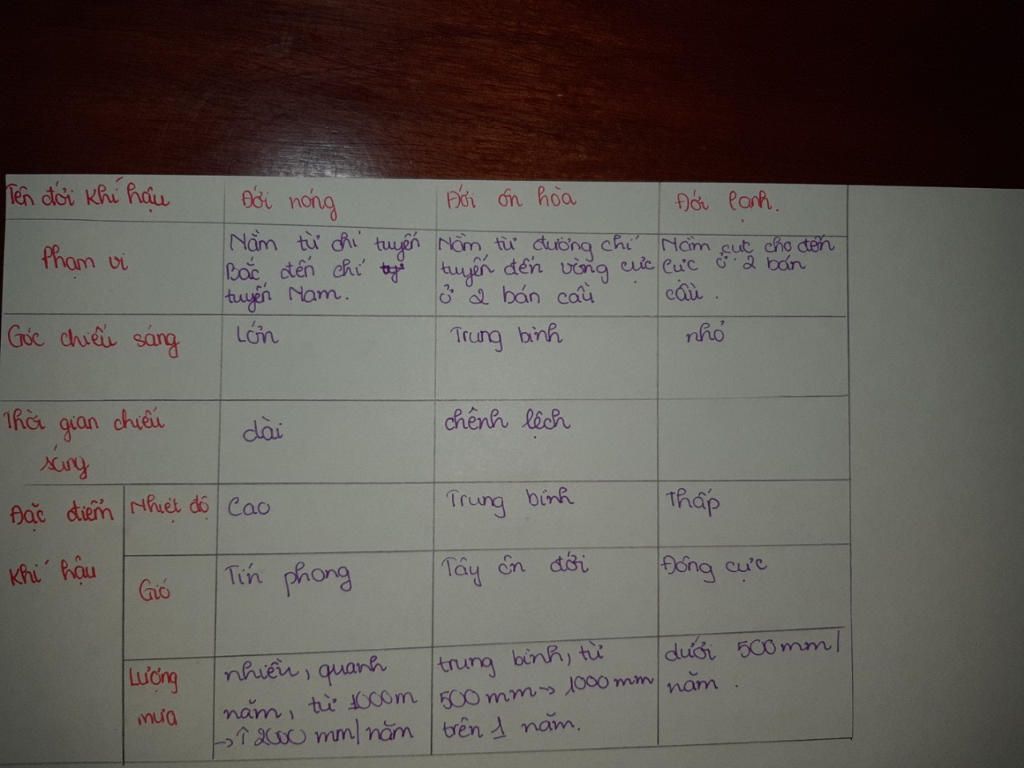 Tên đới khí hậu
Đới nóng
Đới ôn hòa
Đới lạnh.
Phạm vi
Nằm từ chí tuyến
Bắc đến chí
tuyến Nam.
Nằm từ đường chí
tuyến đến vòng cực
ở 2 bán cầu
Nằm cực cho đến
cực ở 2 bán
cầu.
Góc chiếu sáng
Lớn
Trung bình
nhỏ
Thời gian chiếu
sáng
dài
chênh lệch
Đặc điểm
khí hậu
Nhiệt độ
Cao
Trung bình
Thấp
Gió
Tín phong
Tây ôn đới
Đông cực
Lượng
mưa
nhiều, quanh
năm, từ 1000m
→ ↑ 2000 mm/năm
trung bình, từ
500 mm → 1000 mm
trên 1 năm.
dưới 500 mm/
năm.